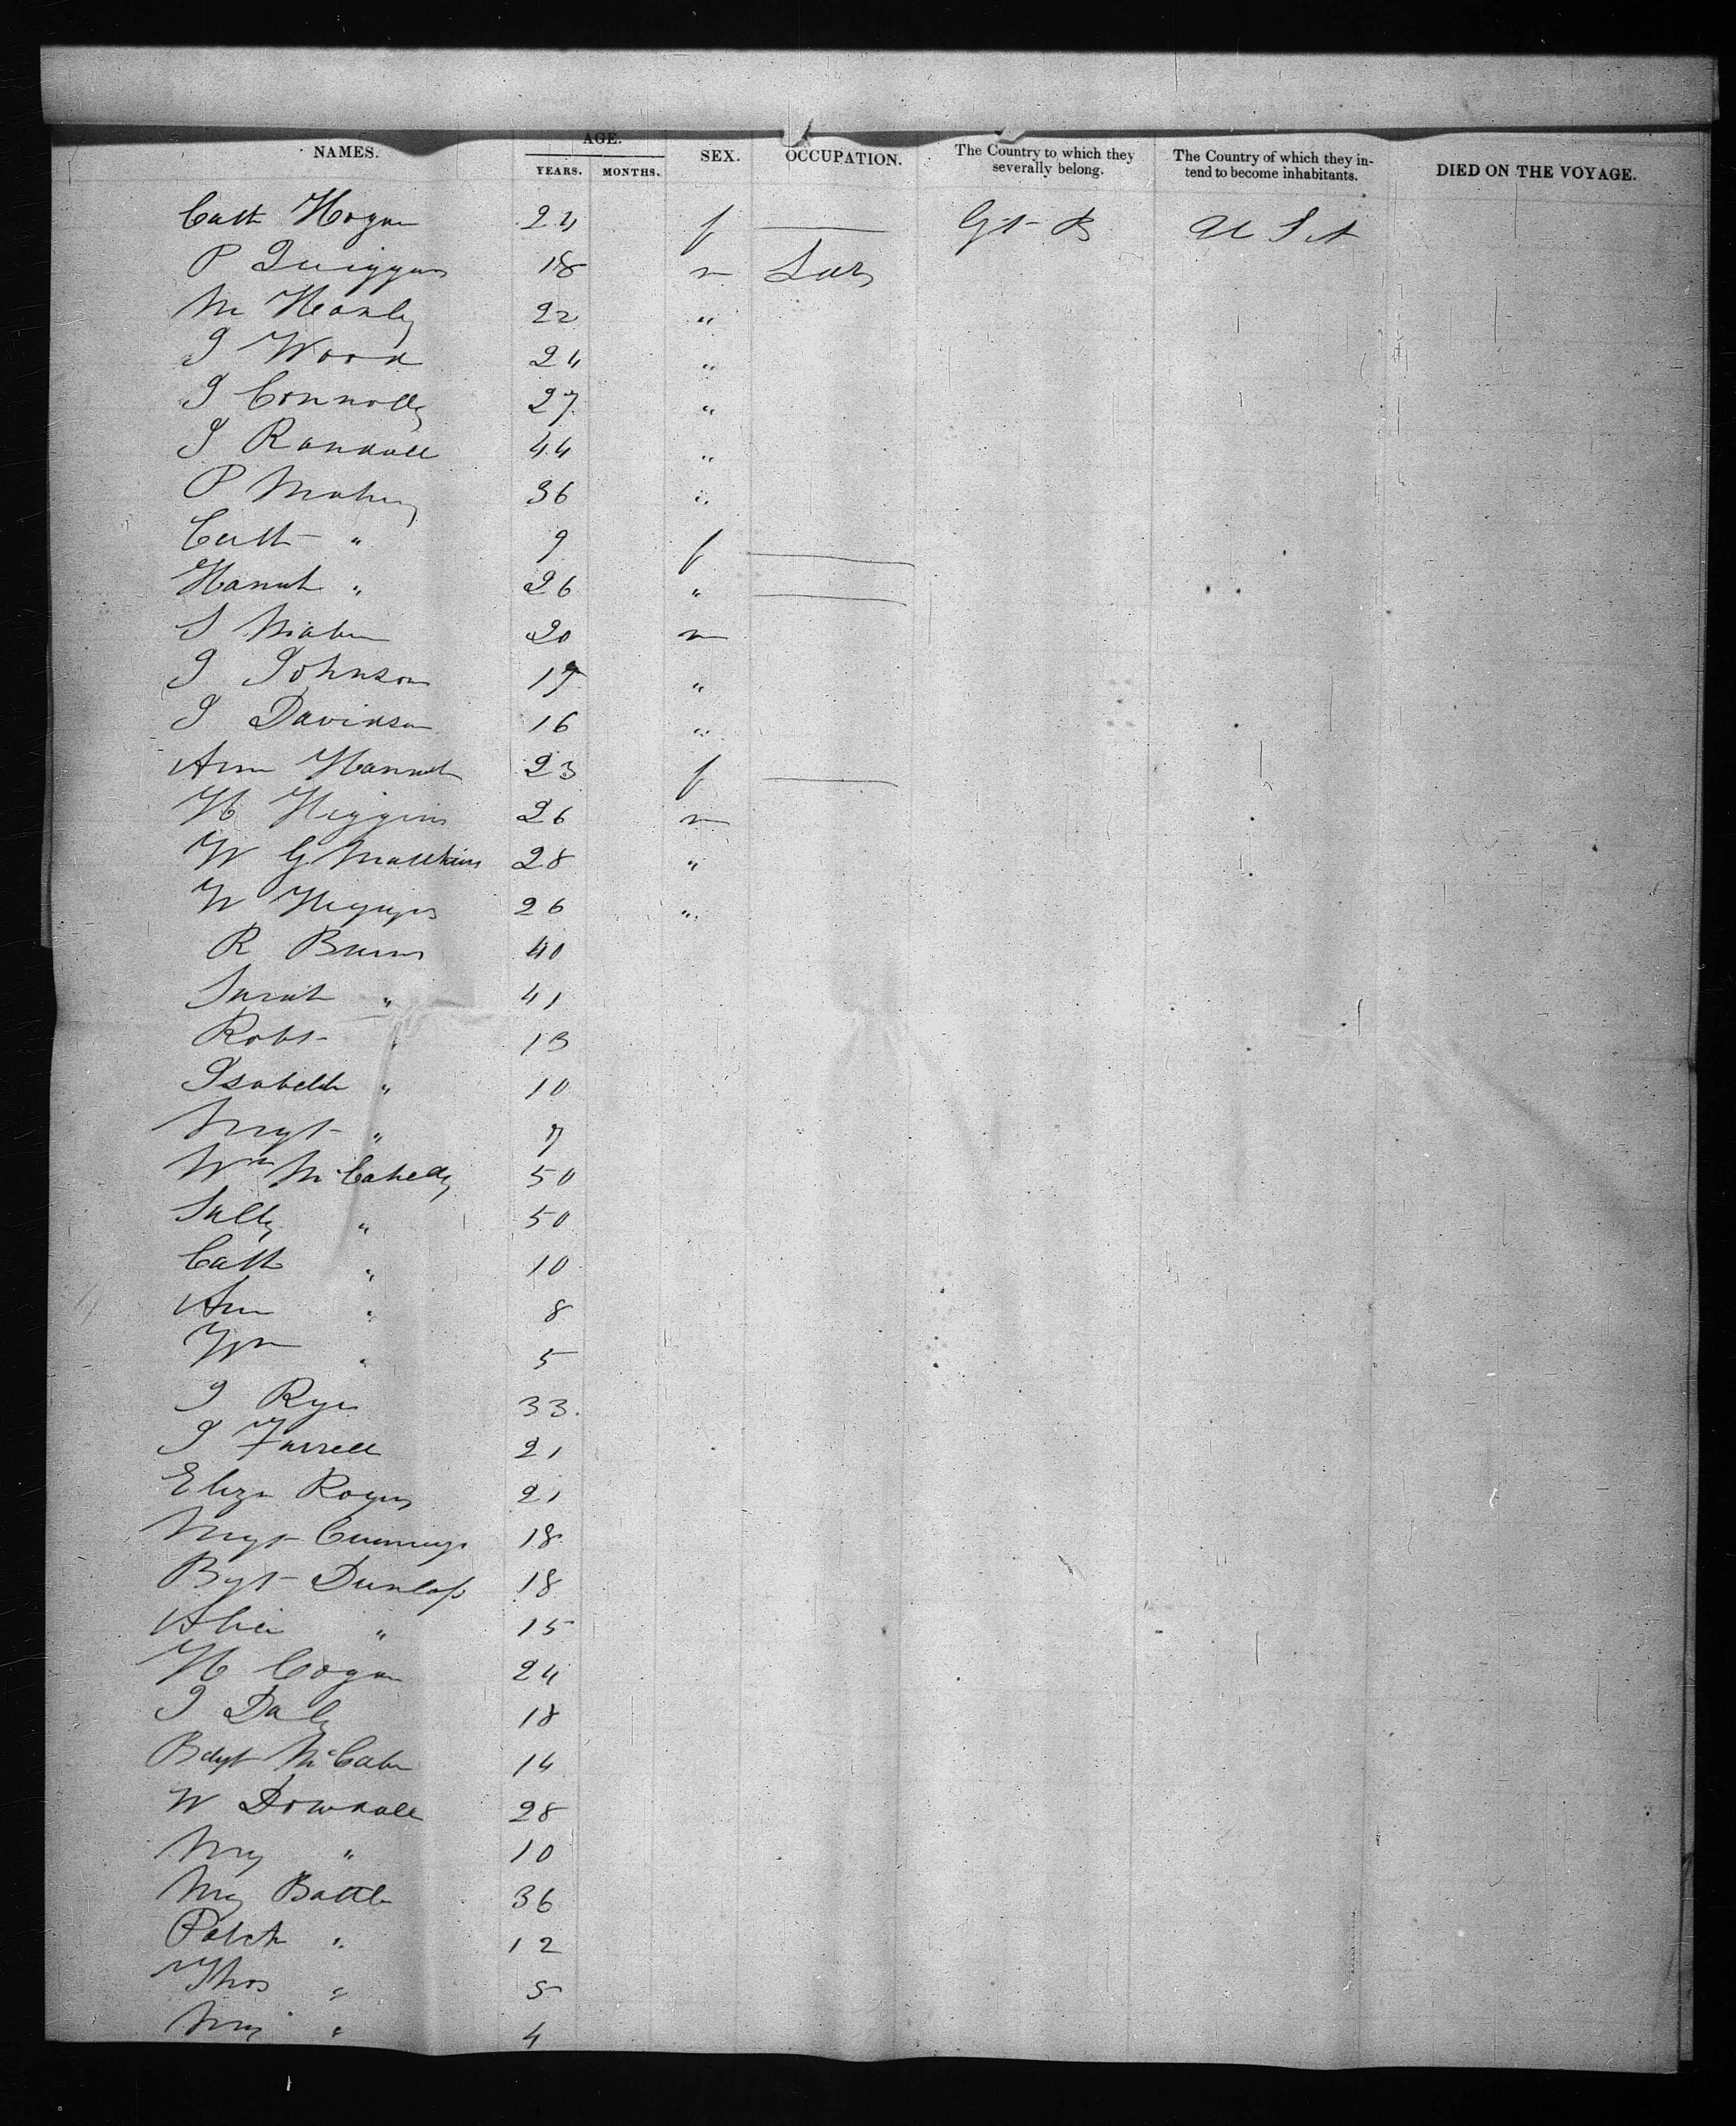 NAMES. AGE. YEARS. MONTHS. SEX. OCCUPATION. The Country to which they severally belong. The Country of which they intend to become inhabitants. DIED ON THE VOYAGE.
Cath Hogan 24 f — Gt B U S A
P Quiggan 18 m Lab
M Hanly 22 "
J Wood 24 "
J Connolly 27 "
J Randall 44 "
P Mahny 36 "
Cath " 9 f —
Hannh " 26 " —
S Mahn 20 m
J Johnson 17 "
J Davidson 16 "
Ann Hannah 23 f —
H Higgins 26 m
W G Matthews 28 "
W 26 "
R Burns 40
Sarah " 41
Robt " 13
Isabella " 10
Mrgt " 7
Wm McCahelly 50
Sally " 50
Cath " 10
Ann " 8
Wm " 5
J Ryan 33
J Farrell 21
Eliza Rogers 21
Mrgt Cummings 18
Bgt Dunlop 18
Alice " 15
H Cogan 24
J Daly 18
Bdgt McCabe 14
W Dowdall 28
Mry " 10
Mry Battle 36
Patck " 12
Thos " 5
Mry " 4